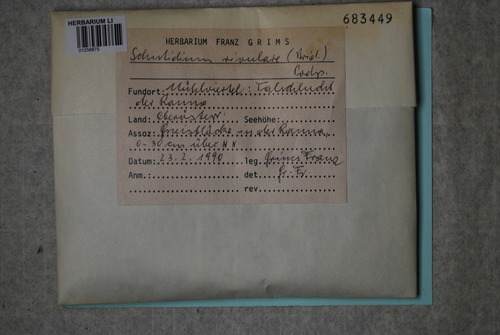 HERBARIUM LI
683449
HERBARIUM FRANZ GRIMS
Schistidium rivulare (Brid.)
Podp.
Fundort: Mühlviertel: Talschlucht
der Ranna
Land: Oberösterr. Seehöhe:
Assoz: in der Ranna,
0-30 cm über NN
Datum: 23.2.1990 leg. Grims Franz
Anm.: det Gr. Fr.
rev.